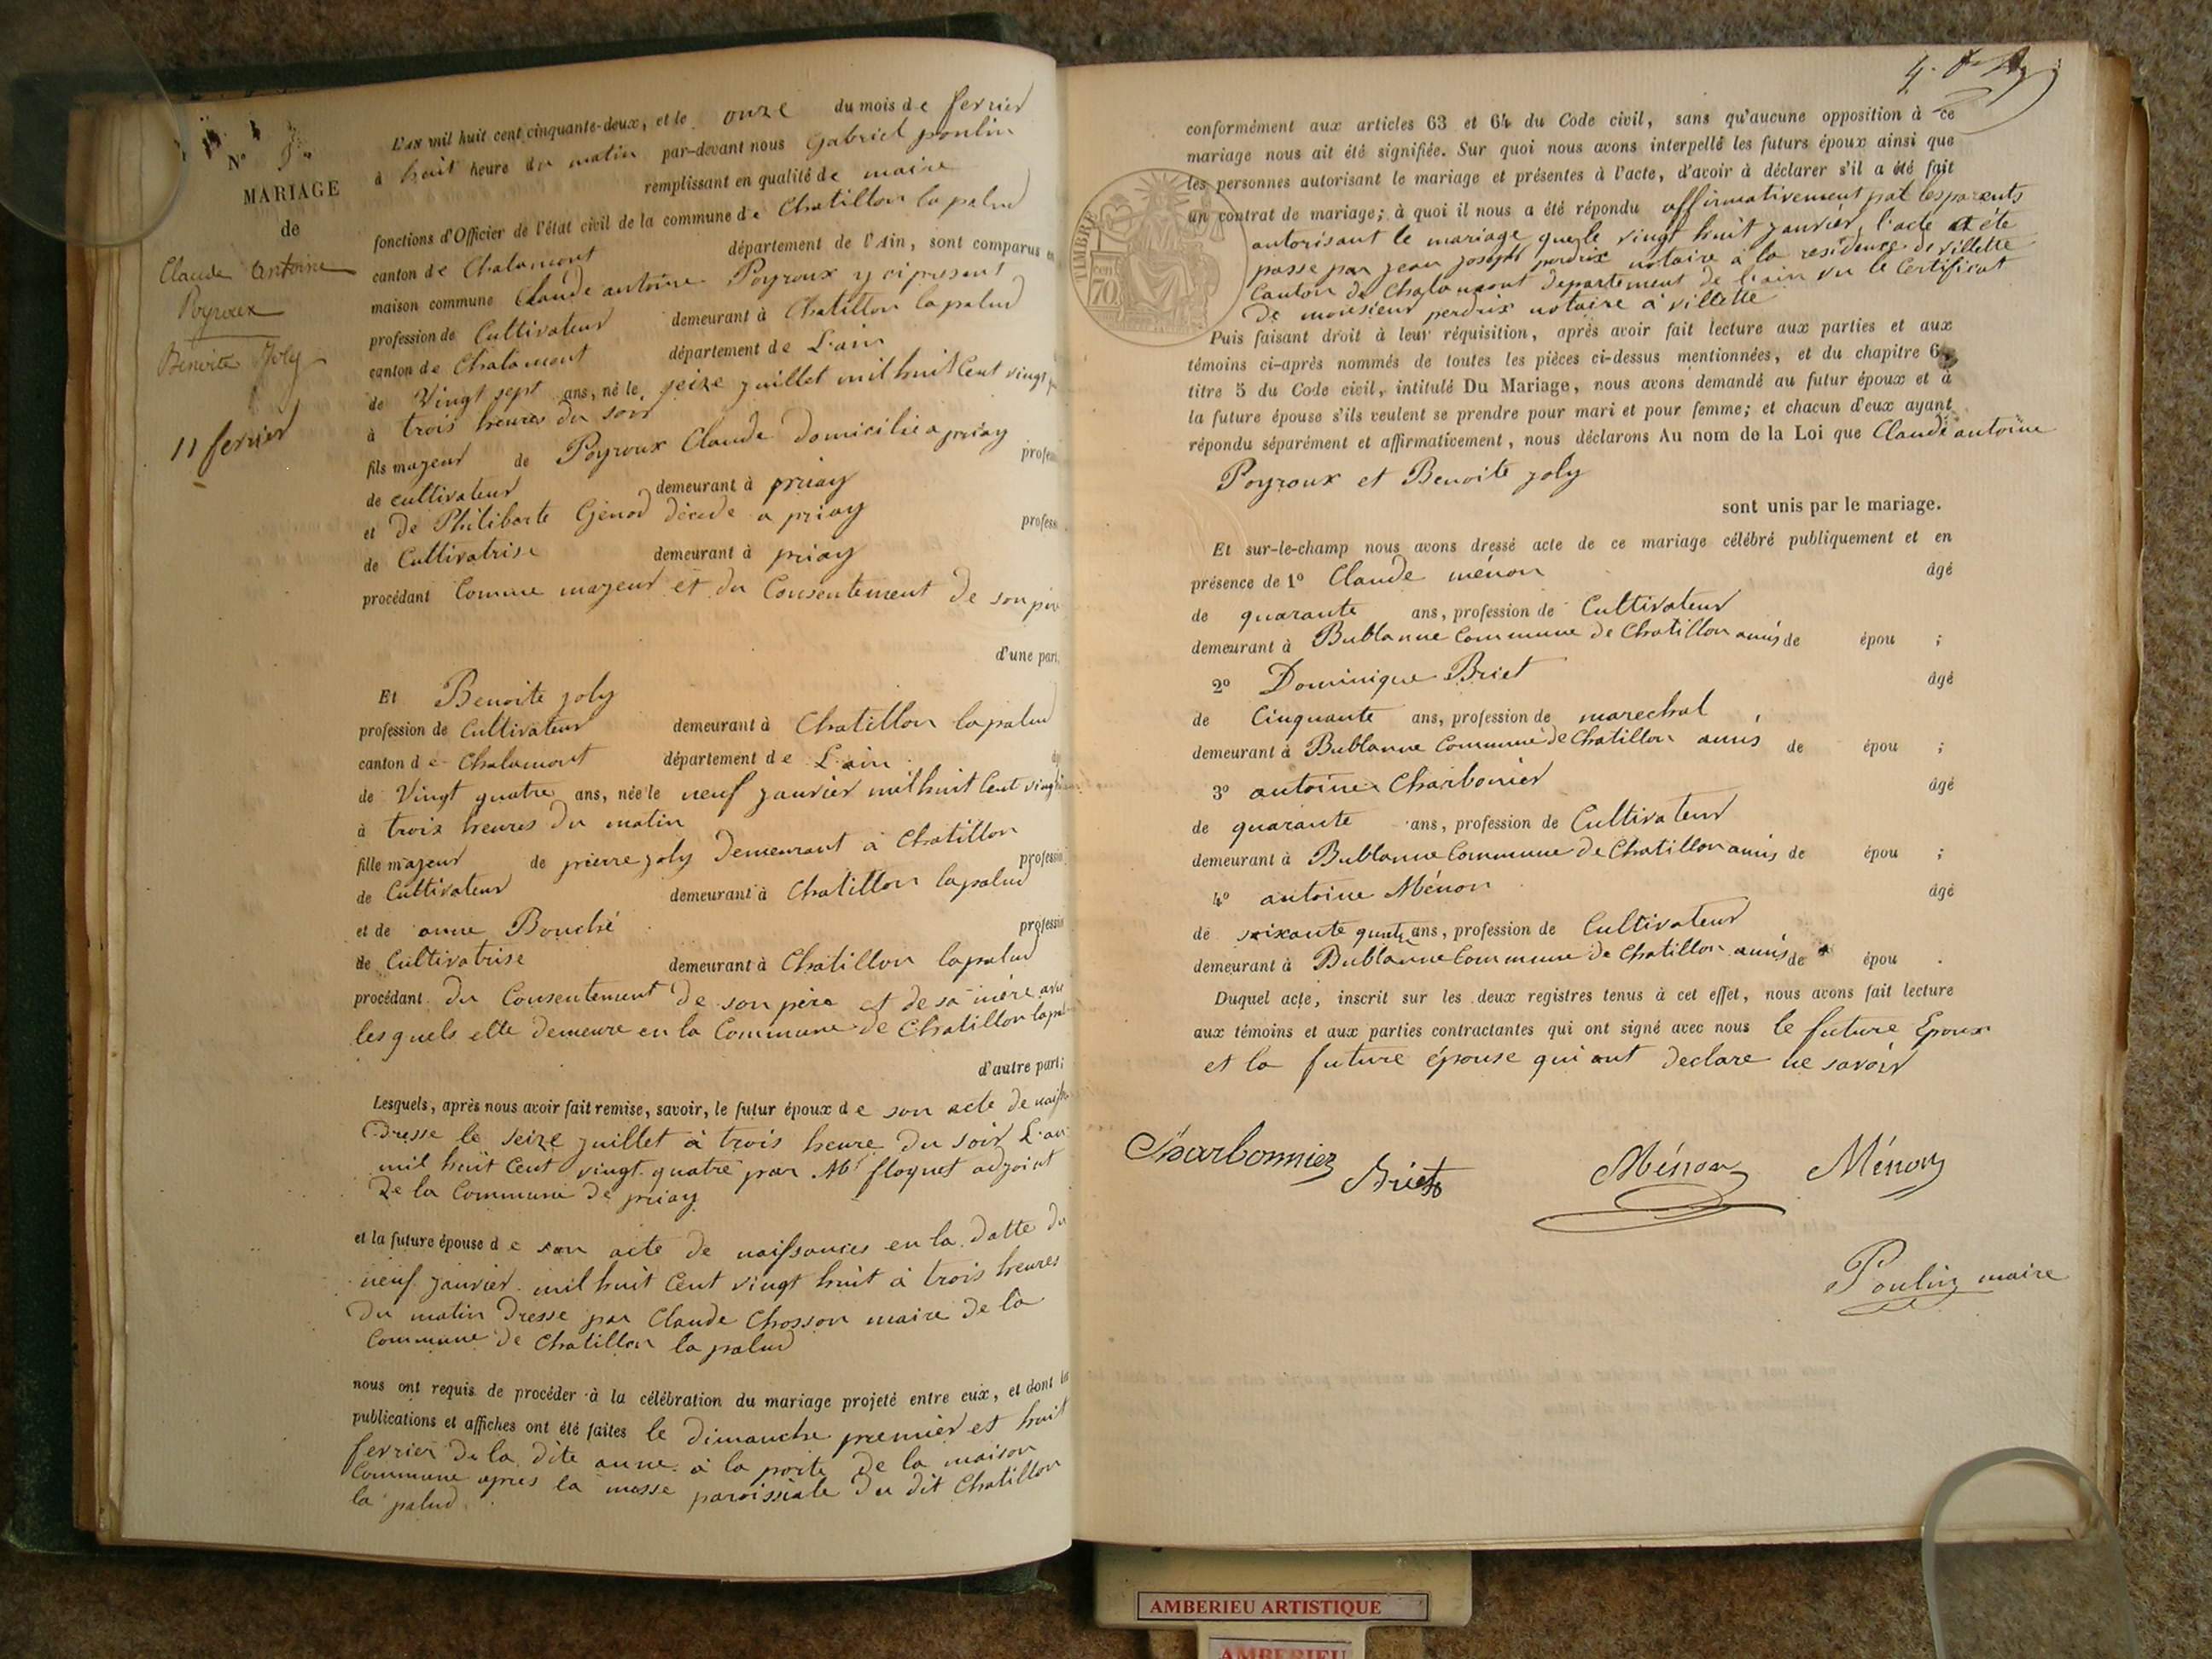 N° 5
MARIAGE
de
Claude Antoine
Poyroux
Benoite Joly
11 fevrier
L'an mil huit cent cinquante-deux, et le onze du mois de fevrier
à huit heure du matin par-devant nous Gabriel poulin
remplissant en qualité de maire
fonctions d'Officier de l'état civil de la commune de Chatillon la palud
canton de Chalamont département de l'Ain, sont comparus en
maison commune Claude antoine Poyroux y ci present
profession de Cultivateur demeurant à Chatillon la palud
canton de Chalamont département de L'ain
de Vingt sept ans, né le seize juillet mil huit Cent vingt
à trois heures du soir
fils majeur de Poyroux Claude Domicilié a priay
profess
de cultivateur demeurant à priay
et de Philiberte Génod décéde a priay
profess
de Cultivatrise demeurant à priay
procédant Comme majeur et du Consentement De son père
d'une part,
Et Benoite joly
profession de Cultivateur demeurant à Chatillon lapalud
canton de Chalamont département de L'ain
de Vingt quatre ans, née le neuf janvier mil huit Cent vingt
à trois heures du matin
fille majeur de pierre joly Demeurant à Chatillon
profession
de Cultivateur demeurant à Chatillon lapalud
et de anne Bouché profession
de Cultivatrise demeurant à Chatillon lapalud
procédant du Consentement De son père et de sa mère avec
lesquels elle demeure en la Commune de Chatillon lapal
d'autre part;
Lesquels, après nous avoir fait remise, savoir, le futur époux de son acte de naiss
Dresse le seize juillet à trois heure Du soir L'an
mil huit Cent vingt quatre par Mr floquet adjoint
De la Commune De priay
et la future épouse de son acte de naissances en la datte du
neuf janvier mil huit Cent vingt huit à trois heures
Du matin Dresse par Claude Chosson maire De la
Commune De Chatillon la palud
nous ont requis de procéder à la célébration du mariage projeté entre eux, et dont les
publications et affiches ont été faites le Dimanche premier et huit
fevrier De la dite anne à la porte De la maison
Commune apres la messe paroissiale Du dit Chatillon
la palud
4.
conformément aux articles 63 et 64 du Code civil, sans qu'aucune opposition à ce
mariage nous ait été signifiée. Sur quoi nous avons interpellé les futurs époux ainsi que
les personnes autorisant le mariage et présentes à l'acte, d'avoir à déclarer s'il a été fait
un contrat de mariage; à quoi il nous a été répondu affirmativement pat les parents
autorisant le mariage que le vingt huit janvier l'acte a éte
passe par jean joseph perdrix notaire à la residence de villette
Canton de Chalamont Departement de l'ain vu le Certificat
De monsieur perdrix notaire à villette
TIMBRE
70
Puis faisant droit à leur réquisition, après avoir fait lecture aux parties et aux
témoins ci-après nommés de toutes les pièces ci-dessus mentionnées, et du chapitre 6
titre 5 du Code civil, intitulé Du Mariage, nous avons demandé au futur époux et à
la future épouse s'ils veulent se prendre pour mari et pour femme; et chacun d'eux ayant
répondu séparément et affirmativement, nous déclarons Au nom de la Loi que Claude antoine
Poyroux et Benoite joly
sont unis par le mariage.
Et sur-le-champ nous avons dressé acte de ce mariage célébré publiquement et en
présence de 1° Claude ménon âgé
de quarante ans, profession de Cultivateur
demeurant à Bublanne Commune de Chatillon amis de épou ;
2° Dominique Briet âgé
de Cinquante ans, profession de marechal
demeurant à Bublanne Commune de Chatillon amis de épou ;
3° antoine Charbonier âgé
de quarante ans, profession de Cultivateur
demeurant à Bublanne Commune De Chatillon amis de épou ;
4° antoine Ménon âgé
de soixante quatre ans, profession de Cultivateur
demeurant à Bublanne Commune De Chatillon amis de épou .
Duquel acte, inscrit sur les deux registres tenus à cet effet, nous avons fait lecture
aux témoins et aux parties contractantes qui ont signé avec nous le future Epoux
et la future épouse qui ont Declare ne savoir
Charbonnier Briet Ménon Ménon
Poulin maire
AMBERIEU ARTISTIQUE
AMBERIEU